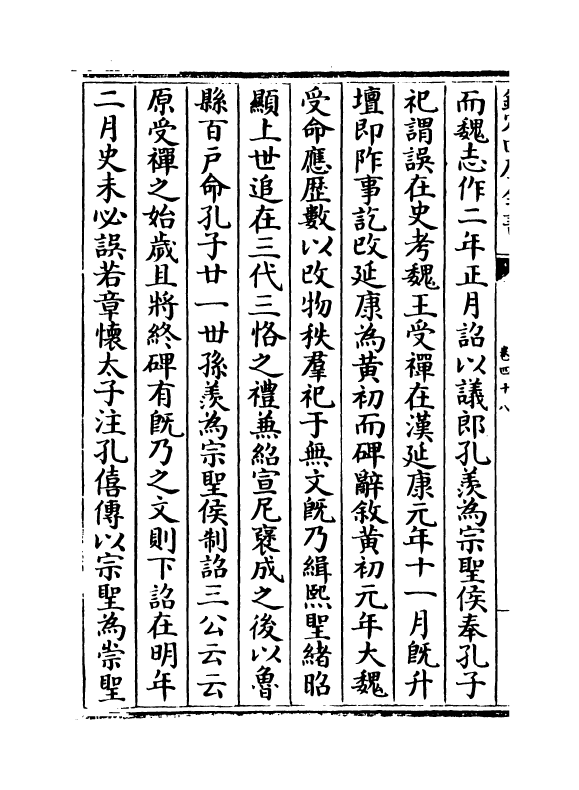 欽定四庫全書
卷四十八
而魏志作二年正月詔以議郎孔羨為宗聖侯奉孔子
祀謂誤在史考魏王受禪在漢延康元年十一月旣升
壇即阼事訖改延康為黃初而碑辭敘黃初元年大魏
受命應歷數以改物秩羣祀于無文旣乃緝熙聖緒昭
顯上世追在三代三恪之禮兼紹宣尼襃成之後以魯
縣百戶命孔子廿一世孫羨為宗聖侯制詔三公云云
原受禪之始歲且將終碑有旣乃之文則下詔在明年
二月史未必誤若章懷太子注孔僖傳以宗聖為崇聖